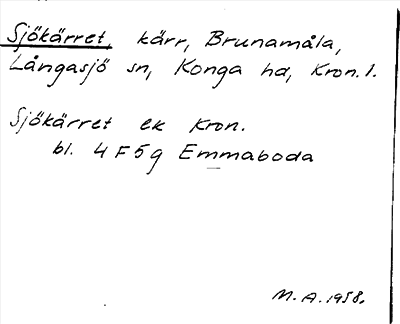 Sjökärret, kärr, Brunamåla,
Långasjö sn, Konga hd, Kron. l.
Sjökärret ek Kron.
bl. 4 F 5 g Emmaboda
M. A. 1958.